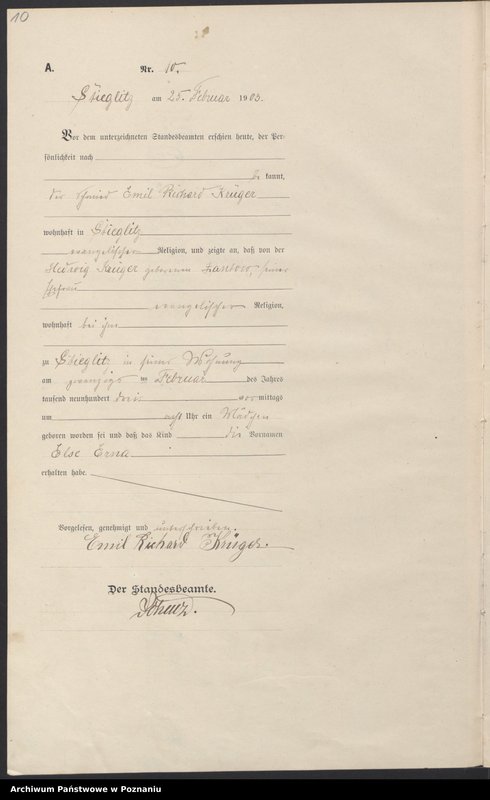 10
A. Nr. 10.
Stieglitz am 25. Februar 1903.
Vor dem unterzeichneten Standesbeamten erschien heute, der Per-
sönlichkeit nach
be kannt,
der Schmied Emil Richard Krüger
wohnhaft in Stieglitz
evangelischer Religion, und zeigte an, daß von der
Hedwig Krüger geborenen seiner
Ehefrau
evangelischer Religion,
wohnhaft bei ihm
zu Stieglitz in seiner Wohnung
am zwanzigsten Februar des Jahres
tausend neunhundert drei vor mittags
um acht Uhr ein Mädchen
geboren worden sei und daß das Kind die Vornamen
Else Erna
erhalten habe.
Vorgelesen, genehmigt und unterschrieben.
Emil Richard Krüger.
Der Standesbeamte.
Archiwum Państwowe w Poznaniu